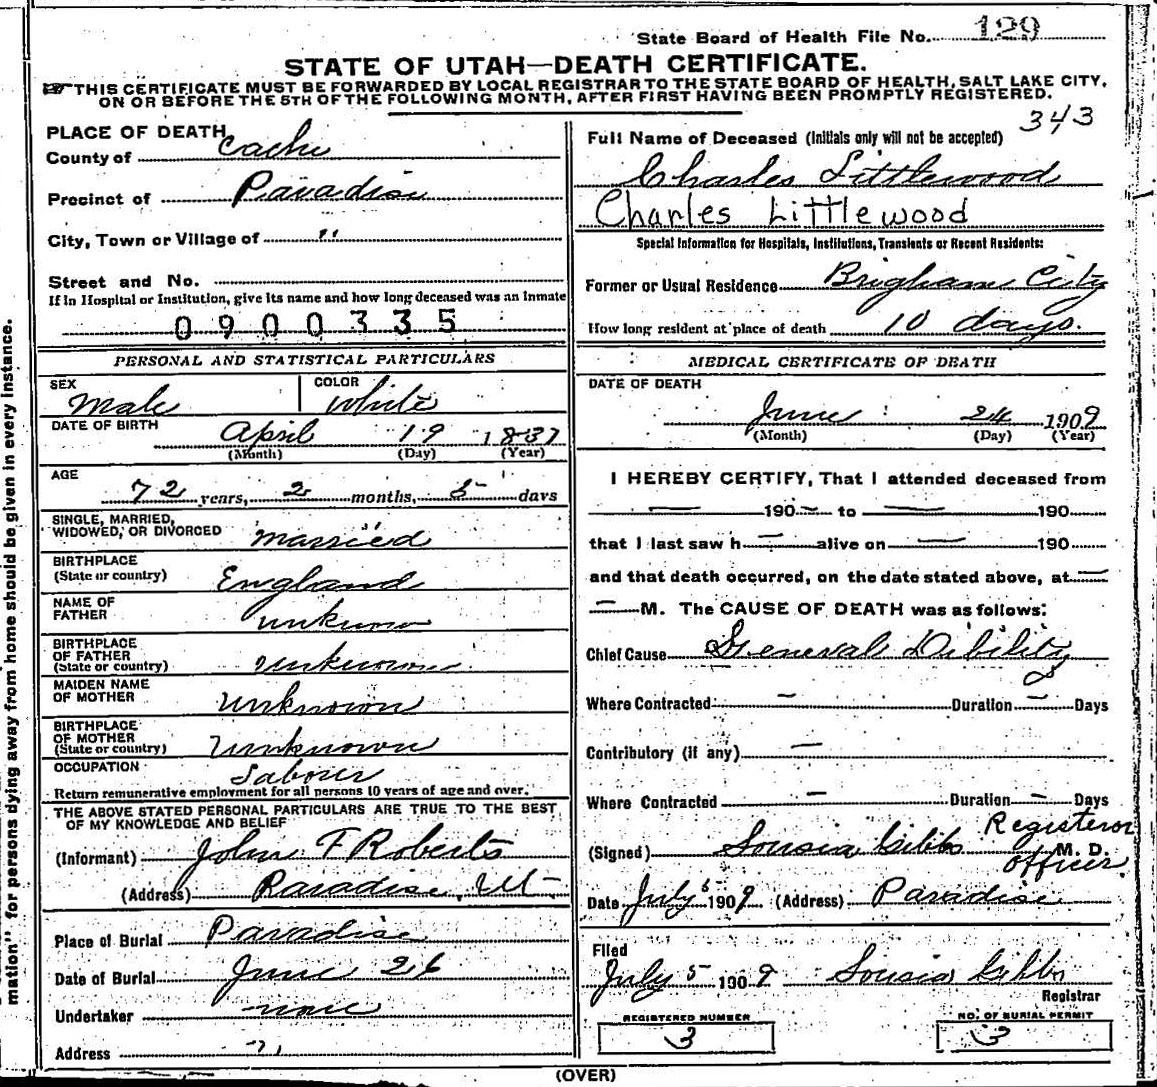 State Board of Health File No. 129
STATE OF UTAH—DEATH CERTIFICATE.
THIS CERTIFICATE MUST BE FORWARDED BY LOCAL REGISTRAR TO THE STATE BOARD OF HEALTH, SALT LAKE CITY,
ON OR BEFORE THE 5TH OF THE FOLLOWING MONTH, AFTER FIRST HAVING BEEN PROMPTLY REGISTERED.
343
PLACE OF DEATH
County of Cache
Precinct of Paradise
City, Town or Village of "
Street and No.
If in Hospital or Institution, give its name and how long deceased was an inmate
0900335
PERSONAL AND STATISTICAL PARTICULARS
SEX Male
COLOR White
DATE OF BIRTH April 19 1837
(Month) (Day) (Year)
AGE
72 years, 2 months, 5 days
SINGLE, MARRIED,
WIDOWED, OR DIVORCED married
BIRTHPLACE
(State or country) England
NAME OF
FATHER unknown
BIRTHPLACE
OF FATHER
(State or country) unknown
MAIDEN NAME
OF MOTHER unknown
BIRTHPLACE
OF MOTHER
(State or country) unknown
OCCUPATION Labour
Return remunerative employment for all persons 10 years of age and over.
THE ABOVE STATED PERSONAL PARTICULARS ARE TRUE TO THE BEST
OF MY KNOWLEDGE AND BELIEF
(Informant) John F Roberts
(Address) Paradise, Ut
Place of Burial Paradise
Date of Burial June 26
Undertaker none
Address "
Full Name of Deceased (Initials only will not be accepted)
Charles Littlewood
Charles Littlewood
Special Information for Hospitals, Institutions, Transients or Recent Residents:
Former or Usual Residence Brigham City
How long resident at place of death 10 days.
MEDICAL CERTIFICATE OF DEATH
DATE OF DEATH
June 24 1909
(Month) (Day) (Year)
I HEREBY CERTIFY, That I attended deceased from
— 190 — to — 190
that I last saw h — alive on — 190
and that death occurred, on the date stated above, at —
— M. The CAUSE OF DEATH was as follows:
Chief Cause General Dibility
Where Contracted — Duration — Days
Contributory (if any) —
Where Contracted — Duration — Days
(Signed) Sousia Gibbs Registeror
M. D.
officer
Date July 5 1909 (Address) Paradise
Filed
July 5 1909 Sousia Gibbs
Registrar
REGISTERED NUMBER
3
NO. OF BURIAL PERMIT
3
(OVER)
mation" for persons dying away from home should be given in every instance.